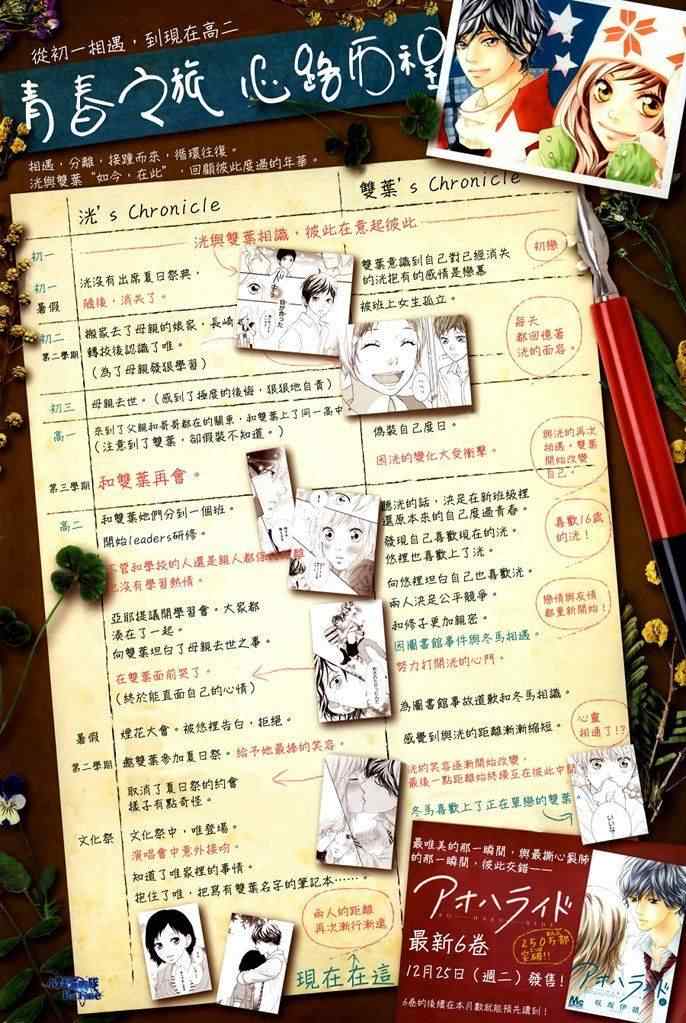 從初一相遇，到現在高二
青春之旅 心路历程
相遇，分離，接踵而來，循環往復。
洸與雙葉“如今，在此”，回顧彼此度過的年華。
洸's Chronicle
雙葉's Chronicle
初一
洸與雙葉相識，彼此在意起彼此
初戀
初一
暑假
洸沒有出席夏日祭典，
隨後，消失了。
雙葉意識到自己對已經消失
的洸抱有的感情是戀慕
被班上女生孤立。
初二
第二學期
搬家去了母親的娘家，長崎
轉校後認識了唯。
(為了母親發狠學習)
每天
都回憶著
洸的面容。
初三
母親去世。(感到了極度的後悔，狠狠地自責)
高一
來到了父親和哥哥都在的關東，和雙葉上了同一高中
(注意到了雙葉，卻假裝不知道。)
偽裝自己度日。
因洸的變化大受衝擊。
與洸的再次
相遇，雙葉
開始改變
自己。
第三學期
和雙葉再會。
高二
和雙葉她們分到一個班。
開始leaders研修。
不管和學校的人還是親人都
也沒有學習熱情。
聽洸的話，決定在新班級裡
還原本來的自己度過青春。
發現自己喜歡現在的洸。
悠裡也喜歡上了洸。
喜歡16歲
的洸！
向悠裡坦白自己也喜歡洸。
兩人決定公平競爭。
和修子更加親密。
因圖書館事件與冬馬相遇。
努力打開洸的心門。
戀情與友情
都重新開始！
亞耶提議開學習會。大家都
湊在了一起。
向雙葉坦白了母親去世之事。
在雙葉面前哭了。
(終於能直面自己的心情)
為圖書館事故道歉和冬馬相識。
感覺到與洸的距離漸漸縮短。
心靈
相通了!?
暑假
煙花大會。被悠裡告白，拒絕。
第二學期
邀雙葉參加夏日祭。給予她最棒的笑容。
取消了夏日祭的約會
樣子有點奇怪。
洸的笑容逐漸開始改變。
最後一點距離始終橫亙在彼此中間
冬馬喜歡上了正在單戀的雙葉。
文化祭
文化祭中，唯登場。
演唱會中意外接吻。
知道了唯家裡的事情。
抱住了唯，把寫有雙葉名字的筆記本……。
兩人的距離
再次漸行漸遠
現在在這
最唯美的那一瞬間，與最撕心裂肺
的那一瞬間，彼此交錯——
アオハライド
最新6卷
250万部
突破!!
12月25日（週二）發售！
6卷的後續在本月數就能預先讀到！
アオハライド
咲坂伊緒